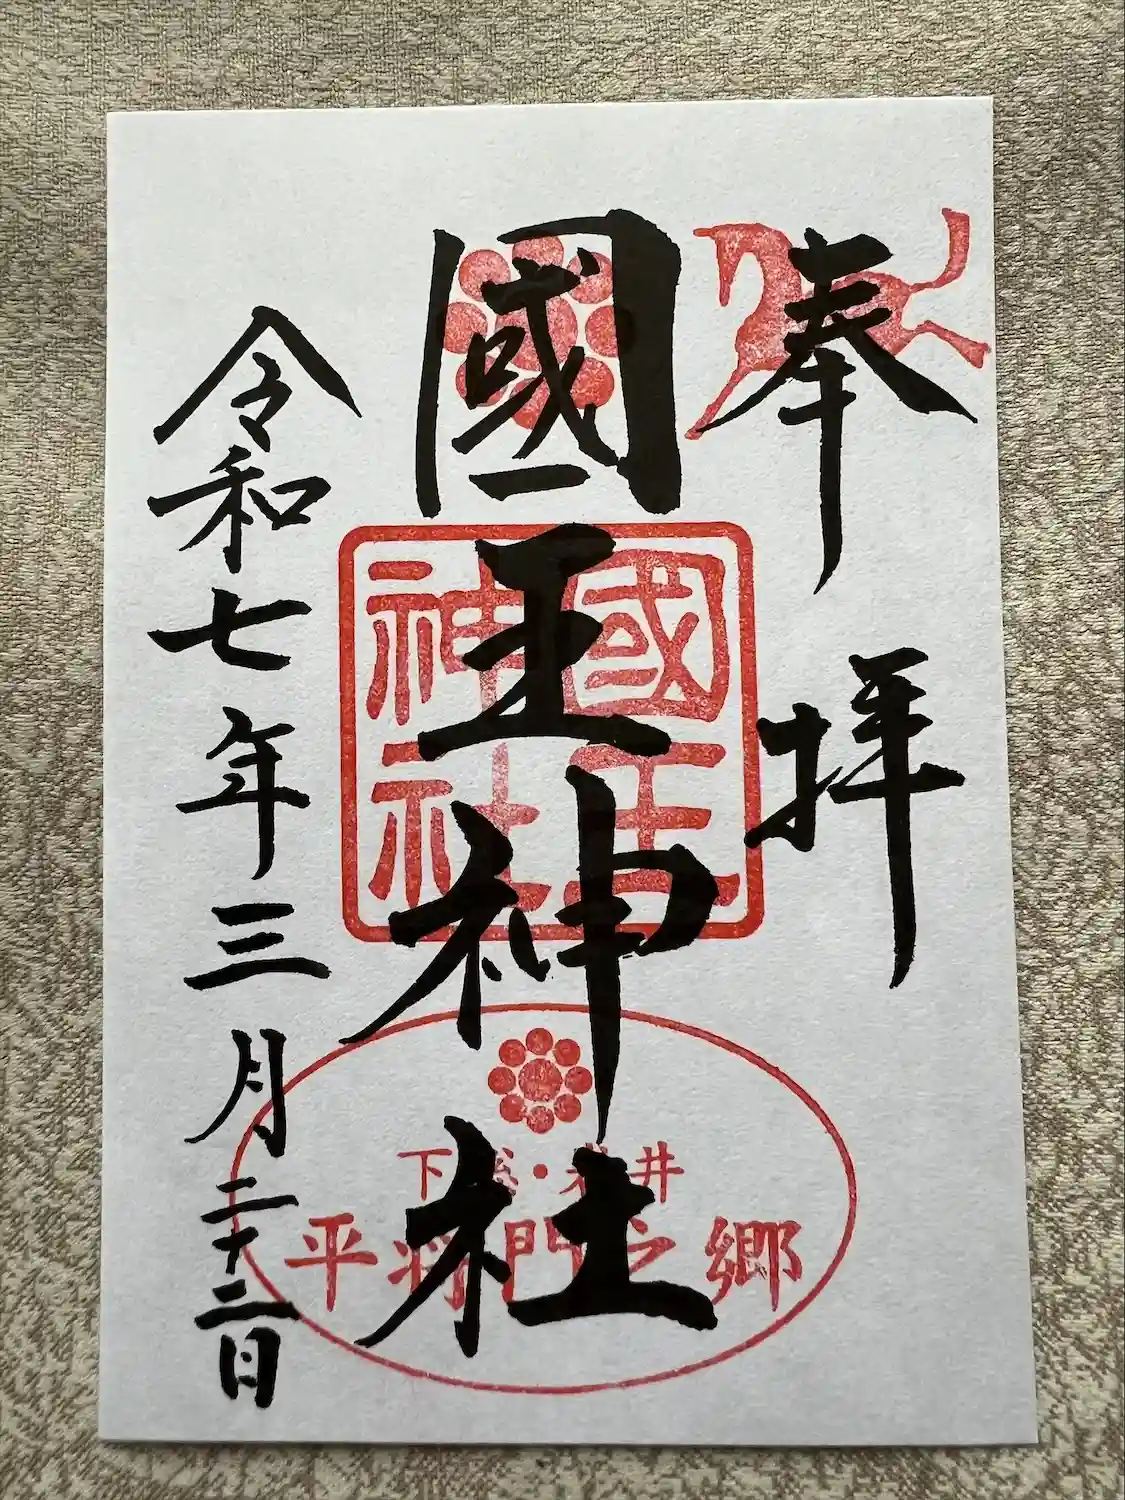 奉拝
國王神社
國王
神社
下総・岩井
平将門之郷
令和七年三月二十二日